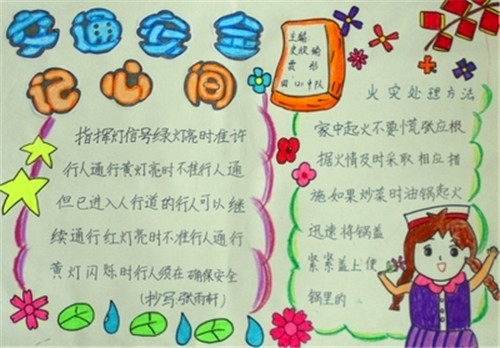 交通安全
记心间
主编:
中队
指挥灯信号绿灯亮时准许
行人通行黄灯亮时不准行人通
但已进入人行道的行人可以继
续通行红灯亮时不准行人通行
黄灯闪烁时行人须在确保安全
(抄写:张雨轩)
火灾处理方法
家中起火不要慌张应根
据火情及时采取相应措
施如果炒菜时油锅起火
迅速将锅盖
紧紧盖上使
锅里的